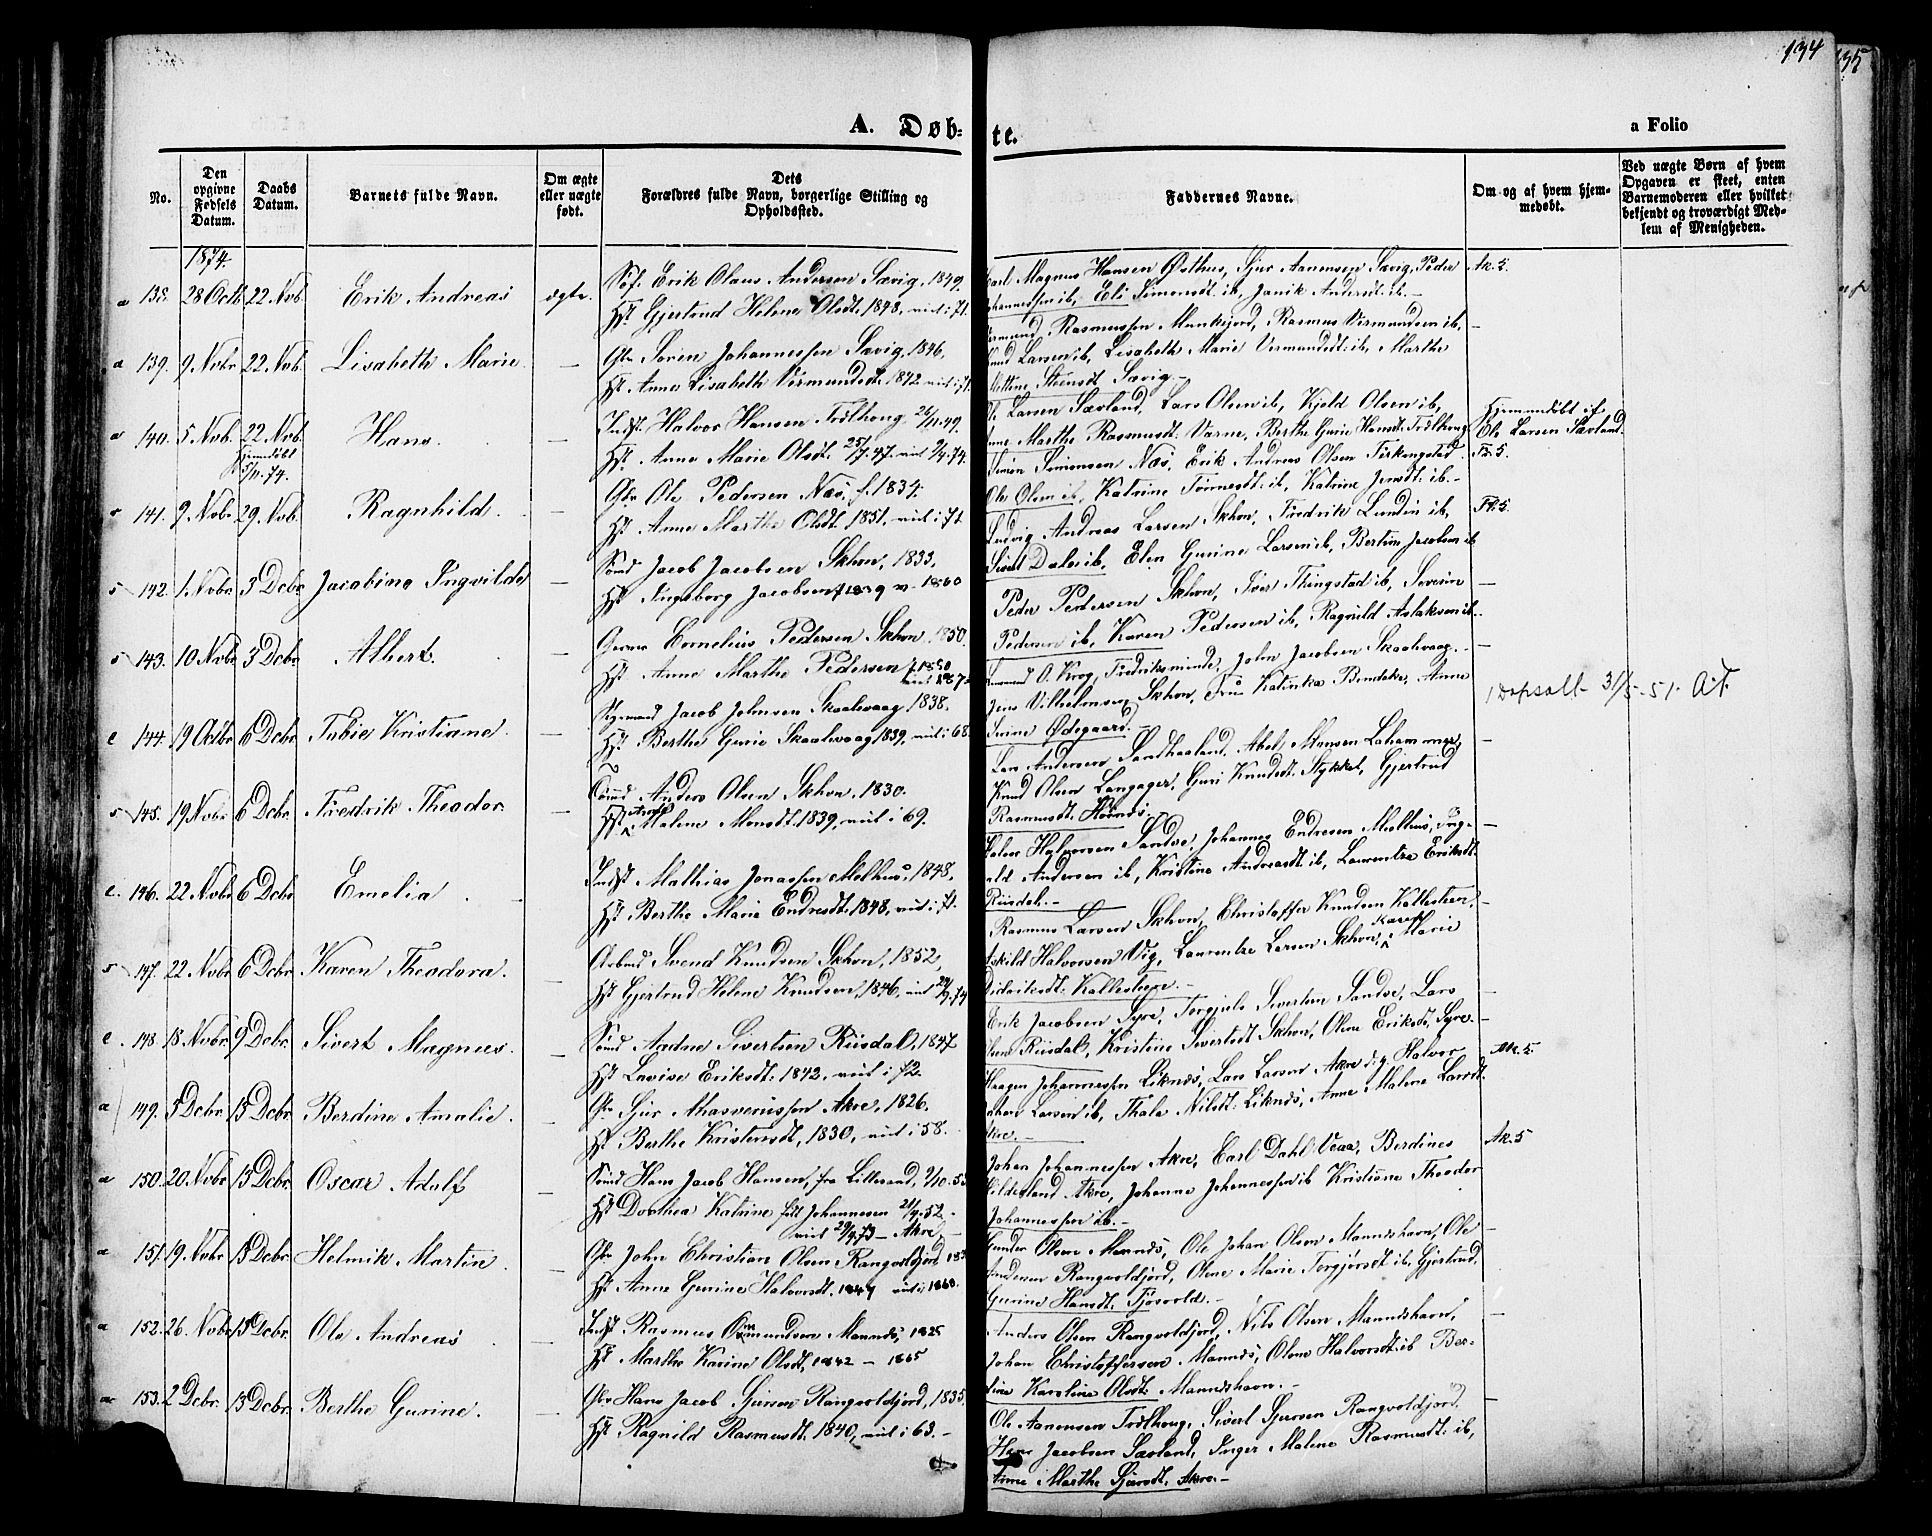 134
135
A. Døb-
te.
a Folio
No.
Den opgivne Fødsels Datum.
Daabs Datum.
Barnets fulde Navn.
Om ægte eller uægte født.
Dets Forældres fulde Navn, borgerlige Stilling og Opholdssted.
Faddernes Navne.
Om og af hvem hjemmedøbt.
Ved uægte Børn af hvem Opgaven er skeet, enten Barnemoderen eller hvilket bekjendt og troværdigt Medlem af Menigheden.
1874.
a 138. 28 Octb. 22 Nvb. Erik Andreas ægte.
Erik Olaus Andersen Sævig, 1849.
Hst. Gjertrud Helene Olsdt. 1848, viet i 71.
Carl Magnus Hansen Østhus, Sjur Aanensen Sævig, Peder
Johannessen ib, Eli Simonsdt. ib, Janik Andersdt. ib.-
Ak. 5.
a 139. 9 Nvbr. 22 Nvb. Lisabeth Marie. —
Gbr Søren Johannessen Sævig, 1846.
Hst. Anne Lisabeth Vermundsdt. 1842 viet i 71.
Rasmussen Munkejord, Rasmus Vermundsen ib,
Larsen ib, Lisabeth Marie Vermundsdt. ib, Marthe
Steensdt. Sævig.-
a 140. 5 Nvb. 22 Nvb. Hans. —
Hjemdøbt 5/11. 74.
Indst. Halvor Hansen Trælhoug 26/11. 49.
Hst. Anne Marie Olsdt. 25/7. 47. viet 2/4. 74.
Larsen Sævland, Lars Olsen ib, Kjeld Olsen ib,
Anne Marthe Rasmusdt. Varne, Berthe Gurie Hansdt. Trælhoug
Hjemmedøbt af
Ole Larsen Sævland.
141. 9 Nvbr. 29 Nvb. Ragnhild. —
Gbr Ole Pedersen Næs, f. 1834.
Hst Anne Marthe Olsdt. 1851, viet i 71.
Simon Simonsen Næs, Erik Andreas Olsen Firkingstad
Ole Olsen ib, Katrine Tørresdt. ib, Katrine Jensdt. ib.-
s 142. 1. Nvbr. 3 Dcbr. Jacobine Ingvilde —
Sømd Jacob Jacobsen Skhvn, 1833,
Hst Ingeborg Jacobsen f 1839 v. 1860
Ludvig Andreas Larsen Skhvn, Fredrik Lundin ib,
Sivert Dale ib, Elen Gurine Larsen ib, Bertine Jacobsen ib
s 143. 10 Nvbr. 3 Dcbr. Albert. —
Cornelius Pedersen Skhvn. 1850.
Hst Anne Marthe Pedersen f. 1850
Peder Pedersen Skhvn, Iver Thingstad ib, Severin
Pedersen ib, Karen Pedersen ib, Ragnild Aslaksen ib.
e 144. 19 Octbr. 6 Dcbr. Tobie Kristiane. —
Jacob Johnsen Skaalevaag 1838.
Hst Berthe Gurie Skaalevaag 1839, viet i 68.
O. Krog, Fredriksminde, John Jacobsen Skaalevaag.
Jens Vilhelmsen Skhvn, Fru Katinka Bendeke, Anne
Serine Ødegaard.
1 Dåpsatt. 31/5-51. A.T.
s 145. 19 Nvbr. 6 Dcbr. Fredrik Theodor. —
Anders Olsen Skhvn, 1830.
Hst Malene Monsdt. 1839, viet i 69.
Lars Andersen Sandhaaland, Abel Monsen Lahammer,
Knud Olsen Langager, Guri Knudsdt. Stykket, Gjertrud
Rasmusdt. Høvnes.
e. 146. 22 Nvbr 6 Dcbr. Emelia. —
Indst Mathias Jonassen Melhus, 1848,
Hst Berthe Marie Endresdt. 1848, viet i 71.
Halvorsen Sandve, Johannes Endresen Melhus, Ing-
Andersen ib, Kristine Andreasdt ib, Laurentze Eriksdt.
Riisdal.-
s 147. 22 Nvbr 6 Dcbr. Karen Theodora. —
Arbmd Svend Knudsen Skhvn, 1852,
Hst Gjertrud Helene Knudsen, 1846, viet
Rasmus Larsen Skhvn, Christoffer Knudsen Kallesteen,
Askild Halvorsen Vig, Laurentze Larsen Skhvn, Karen Marie
Didriksdt. Kallesteen.-
e. 148. 18 Nvbr. 9 Dcbr. Sivert Magnus. —
Sømd Andne Sivertsen Riisdal, 1847
Hst Lovise Eriksdt. 1842. viet i 72.
Erik Jacobsen Syre, Torgjuls Sivertsen Sandve, Lars
Olsen Riisdal, Kristine Sivertsdt Skhvn, Olene Eriksdt, Syre.
a 149. 5 Dcbr. 13 Dcbr. Berdine Amalie. —
Gbr Sjur Aasverussen Akre, 1826.
Hst Berthe Kristensdt, 1830, viet i 58.
Haagen Johannessen Liknes, Lars Larsen Akre d.y. Halvor
Larsen ib, Thale Nilsdt. Liknes, Anne Malene Larsdt.
Akre.-
Ak. 5
a 150. 20 Nvbr 13 Dcbr. Oscar Adolf —
Sømd Hans Jacob Hansen, fra Lillesand, 2/10. 53
Hst Dorthea Katrine født Johannesen 21/9. 52.-
viet 29/9. 73 - Akre.
Johan Johannessen Akre, Carl Dahl Veaa, Berdines
Hilderland Akre, Johanne Johannessen ib Kristiane Theodor
Johannessen ib.-
Ak. 5
a 151. 19. Nvbr. 13 Dcbr. Helmik Martin. —
Gbr John Christian Olsen Rangvoldjord
Hst Anne Gurine Halvorsdt. 1847 viet 1868.
Gunder Olsen Mannes, Ole Johan Olsen Manneshavn, Ole
Andersen Rangvoldjord, Olene Marie Torgjersdt ib, Gjertrud
Gurine Hansdt. Tjøsvold.-
a 152. 26. Nvbr. 13 Dcbr. Ole Andreas. —
Indst Rasmus Ommundsen Mannes, 1825
Hst Marthe Karine Olsdt, 1842 - 1865
Anders Olsen Rangvoldjord, Nils Olsen Manneshavn,
Johan Christoffersen Mannes, Olene Halvorsdt. ib Ber-
tine Karoline Olsdt. Manneshavn.-
a 153. 2 Dcbr. 13 Dcbr. Berthe Gurine. —
Gbr Hans Jacob Sjursen Rangvoldjord, 1835.
Hst Ragnild Rasmusdt. 1840, viet i 63.-
Ole Aanensen Trælhoug, Sivert Sjursen Rangvoldjord,
Hans Jacobsen Sævland, Inger Malene Rasmusdt. ib,
Anne Marthe Sjursdt. Akre.-